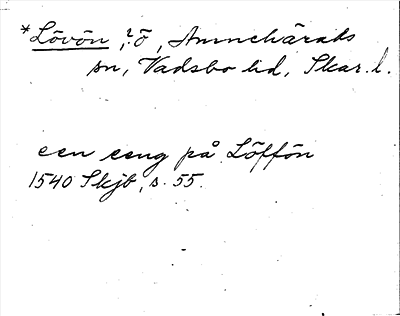 *Lövön, ?ö, Amnehärads
sn, Vadsbo hd, Skar. l.
een eeng på Löffön
1540 Skjb, s. 55.